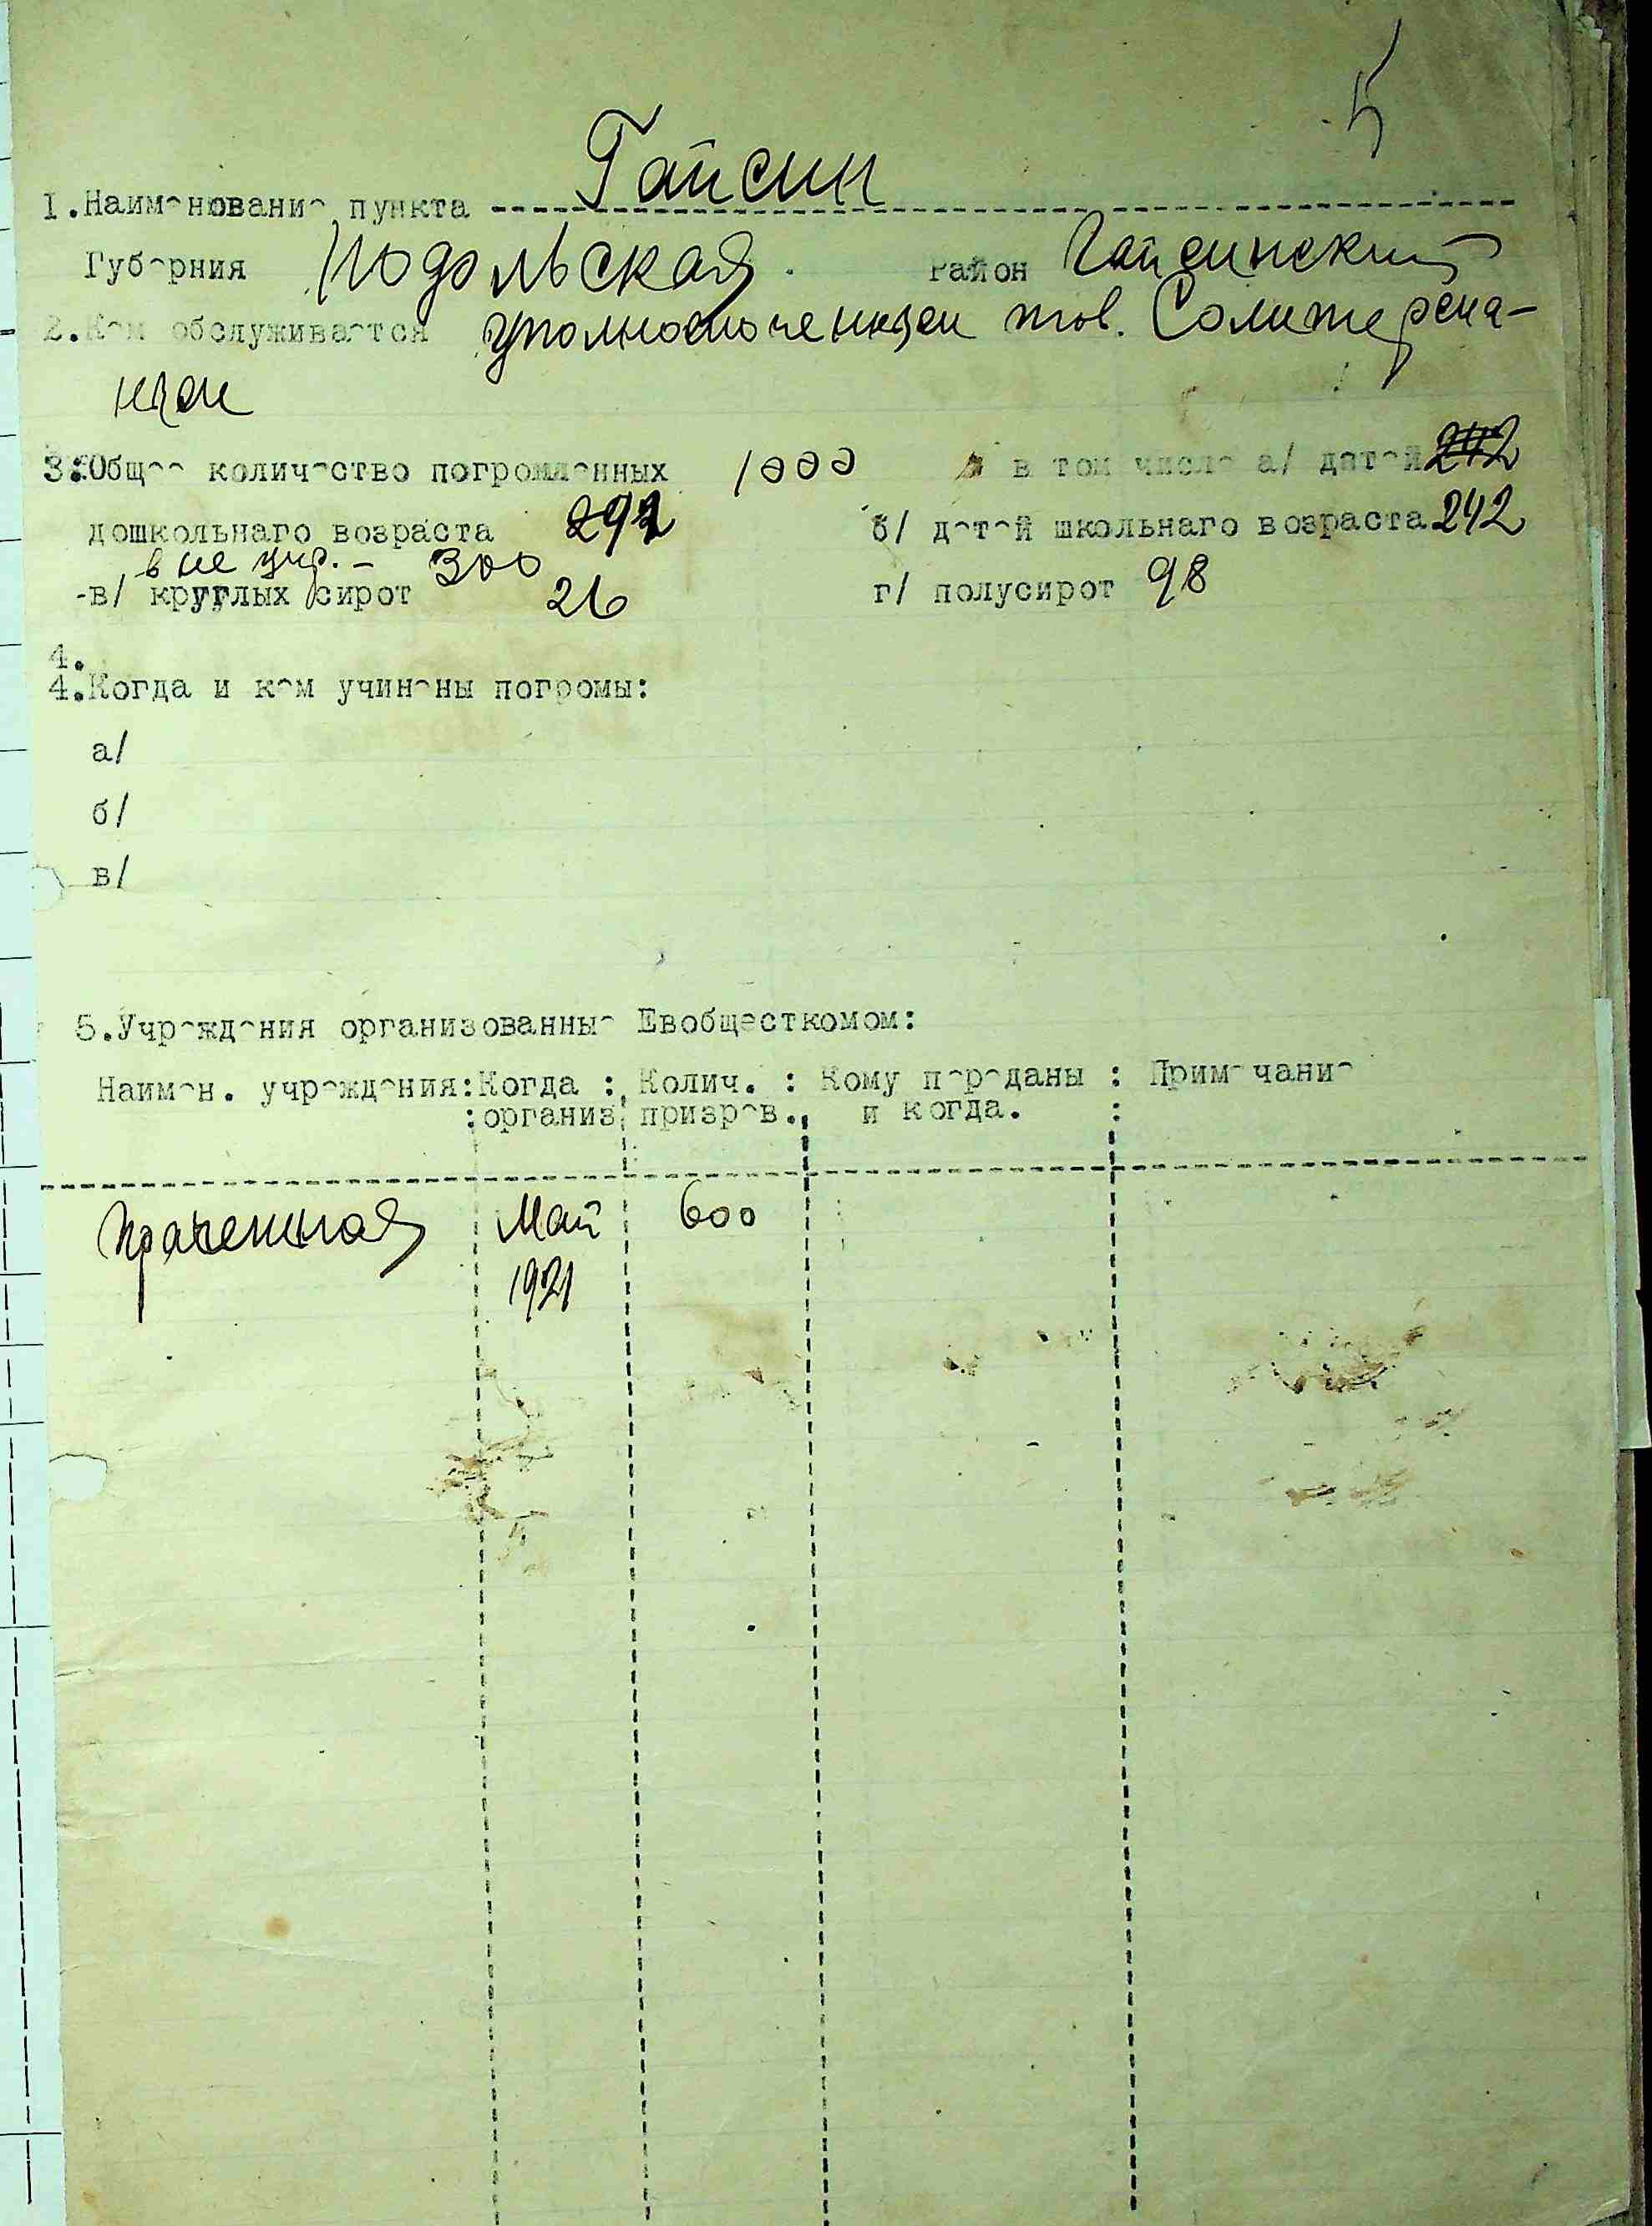 5
1. Наименование пункта Гайсин
Губерния Подольская. Район Гайсинский
2. Кем обслуживается уполномоченным тов. Солитерма-
ном
3. Общее количество погромленных 1000 в том числе а/ детей 242
дошкольнаго возраста 292 б/ детей школьнаго возраста 242
вне учр. - 300
-в/ круглых сирот 26 г/ полусирот 98
4.
4. Когда и кем учинены погромы:
а/
б/
в/
5. Учреждения организованные Евобщесткомом:
Наимен. учреждения: Когда : Колич. : Кому переданы : Примечание
: организ призрев. и когда. :
Прачешная Май 600
1921